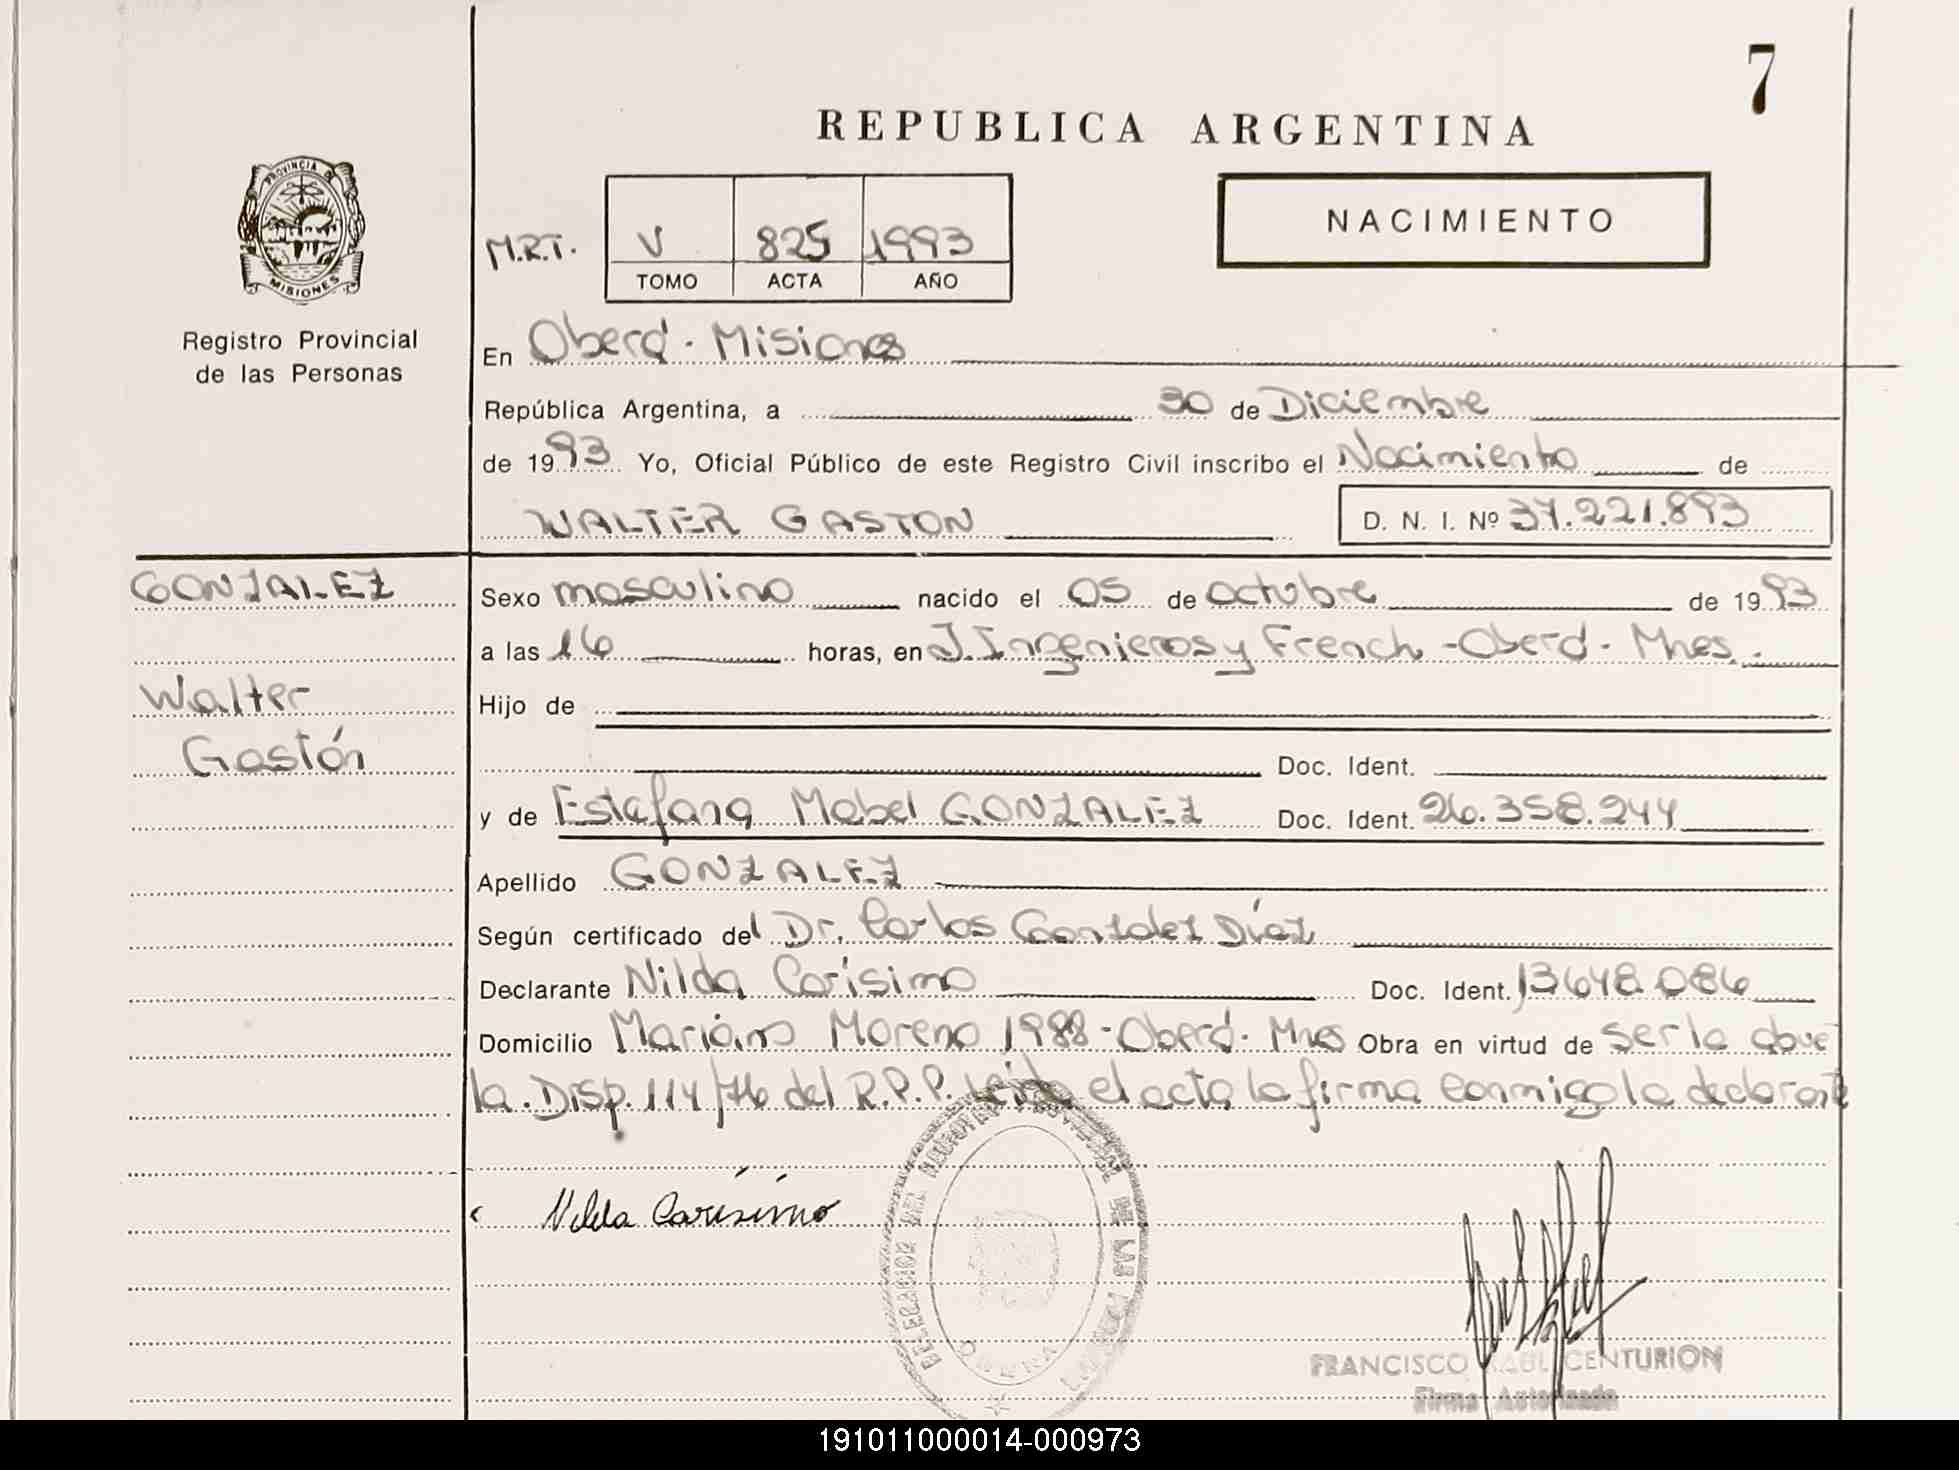 7
REPUBLICA ARGENTINA
PROVINCIA DE
MISIONES
Registro Provincial
de las Personas
M.R.T. V 825 1993
TOMO ACTA AÑO
NACIMIENTO
En Oberá - Misiones
República Argentina, a 30 de Diciembre
de 1993 Yo, Oficial Público de este Registro Civil inscribo el Nacimiento de
WALTER GASTON D. N. I. Nº 37.221.893
GONZALEZ
Walter
Gastón
Sexo masculino nacido el 05 de octubre de 1993
a las 16 horas, en J. Ingenieros y French - Oberá - Mnes.
Hijo de
Doc. Ident.
y de Estefana Mabel GONZALEZ Doc. Ident. 26.358.244
Apellido GONZALEZ
Según certificado del Dr. Carlos Gonzalez Díaz
Declarante Nilda Carísimo Doc. Ident. 13648.086
Domicilio Mariano Moreno 1988 - Oberá - Mnes Obra en virtud de ser la abue
la. Disp. 114/76 del R.P.P. Leída el acta la firma conmigo la declarante
Nilda Carísimo
DELEGACION DEL REGISTRO PROVINCIAL DE LAS
FRANCISCO RAUL CENTURION
Firma Autorizada
191011000014-000973